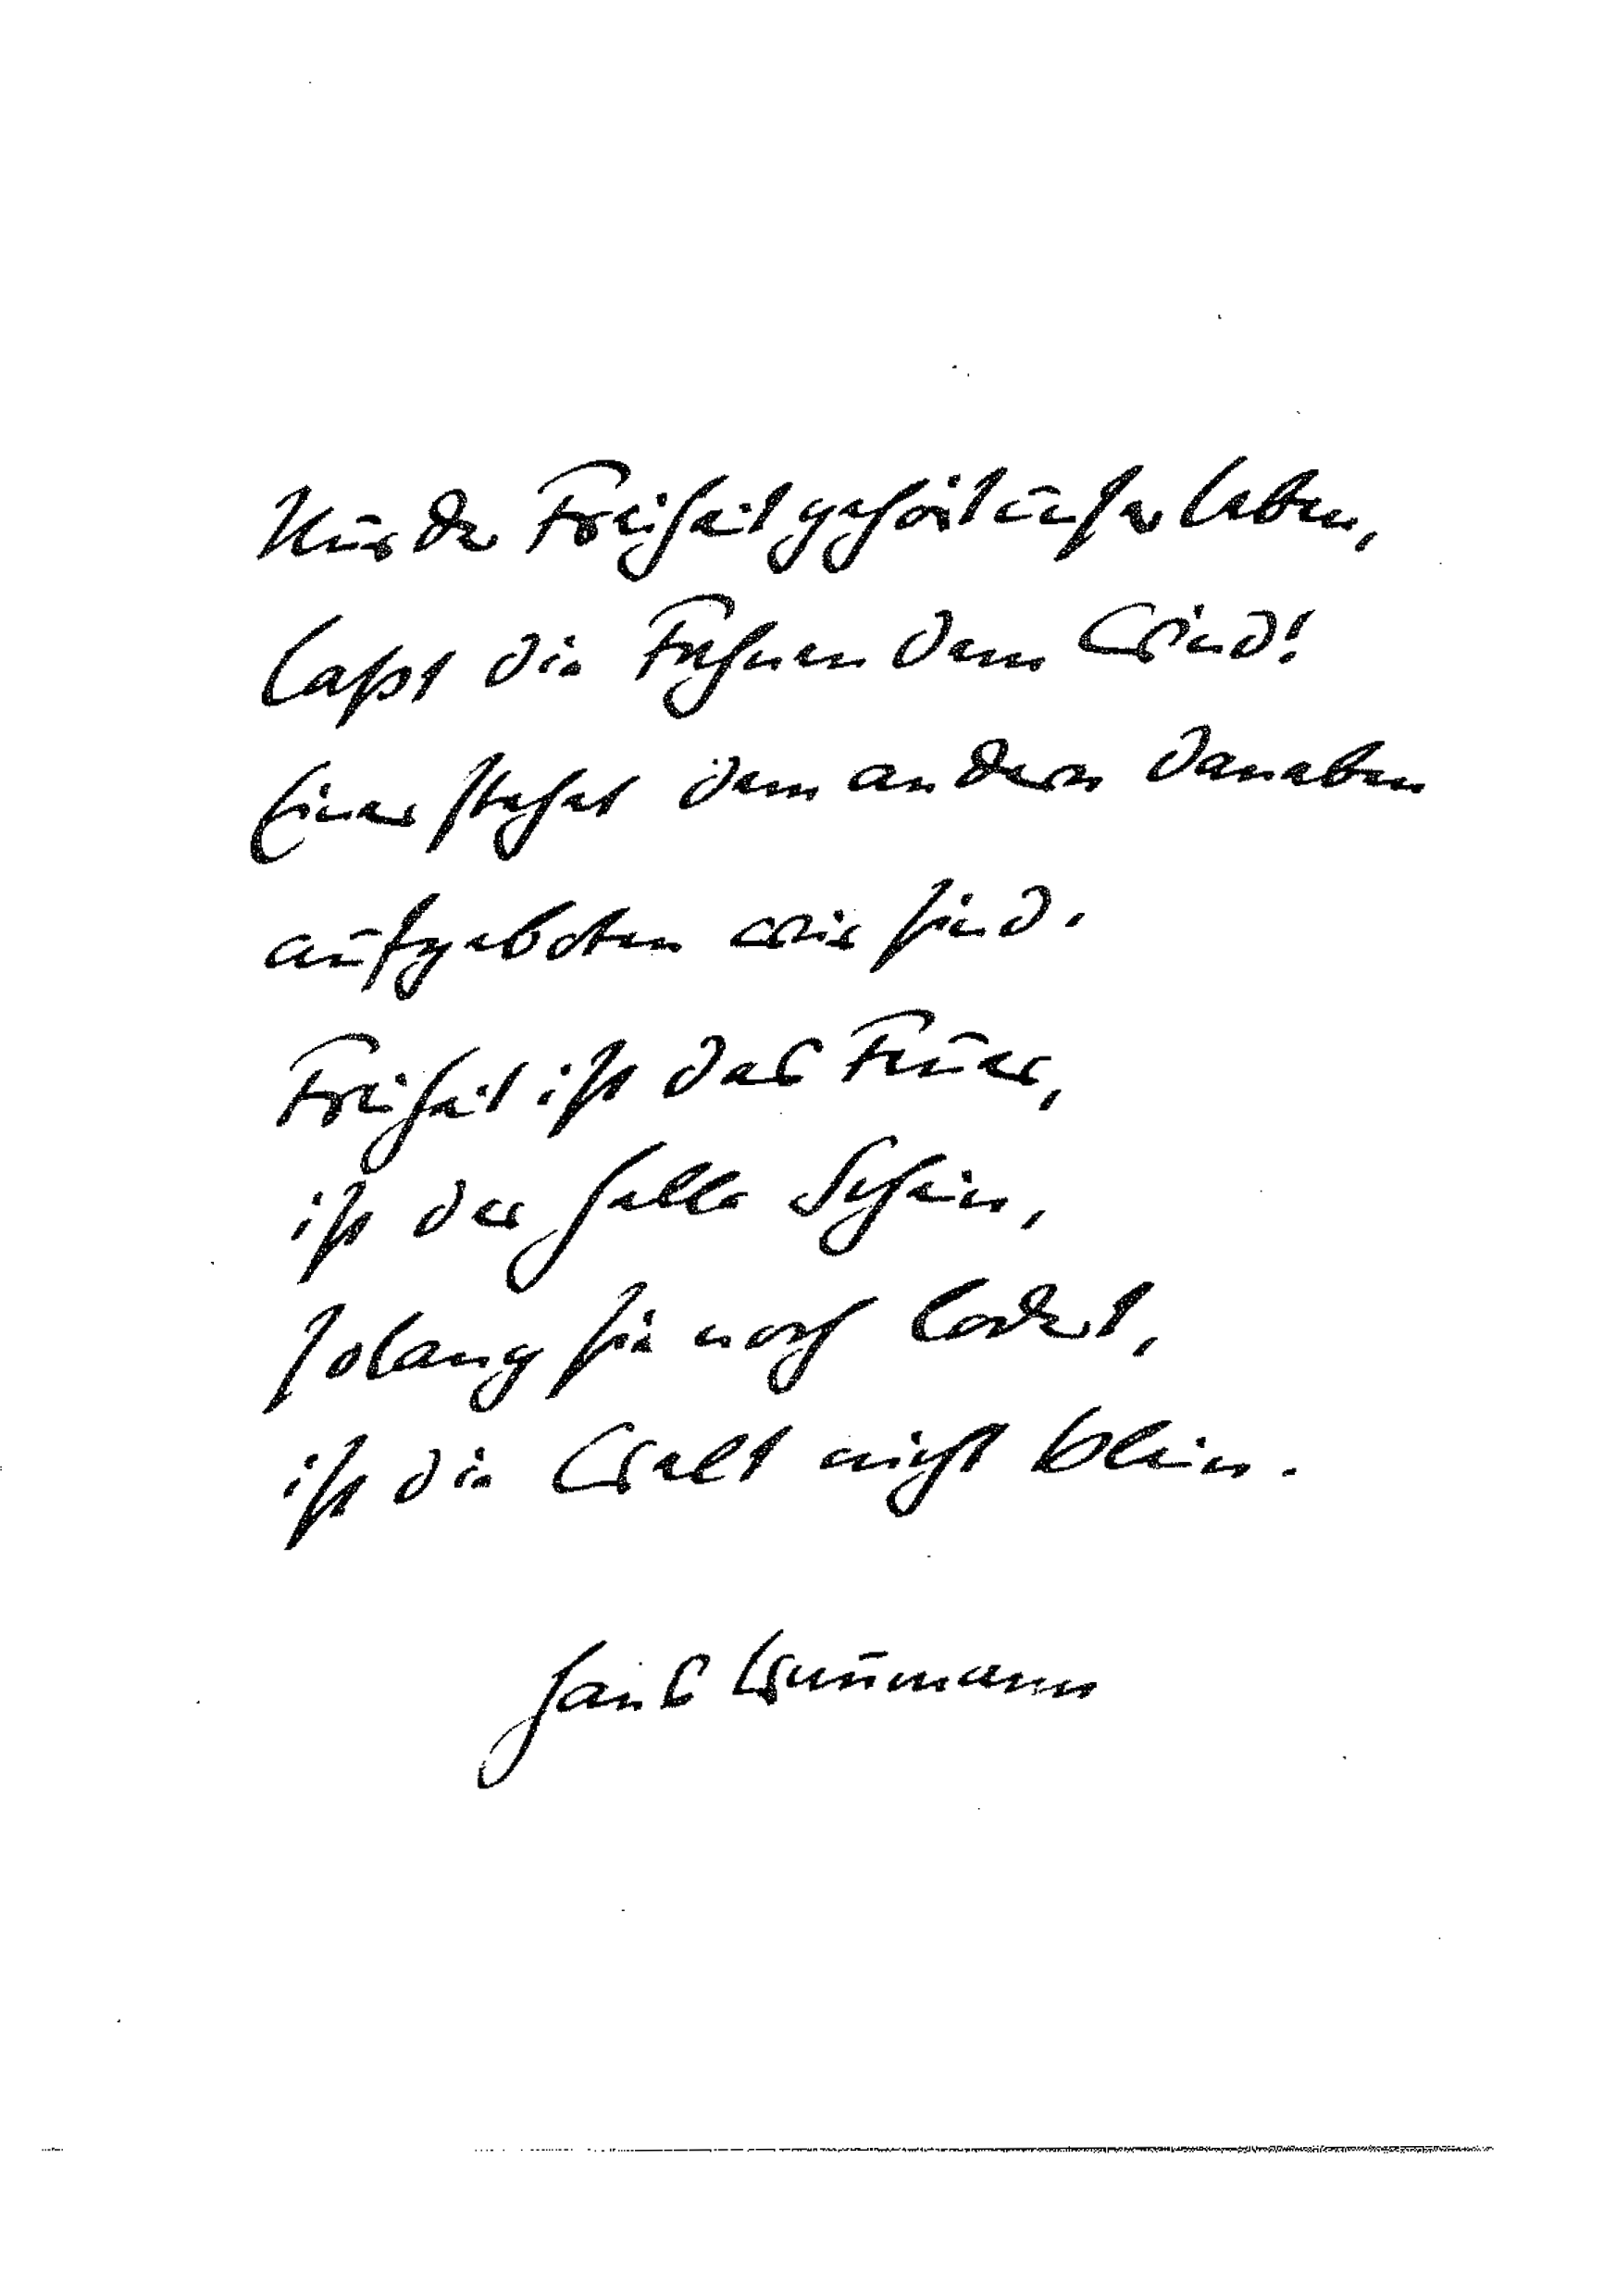 Nur der Freiheit gehört unser Leben,
laßt die Fahnen dem Wind!
Einer stehet dem andern daneben
aufgeboten wir sind.
Freiheit ist das Feuer,
ist der helle Schein,
solang sie noch lodert,
ist die Welt nicht klein.
Hans Baumann